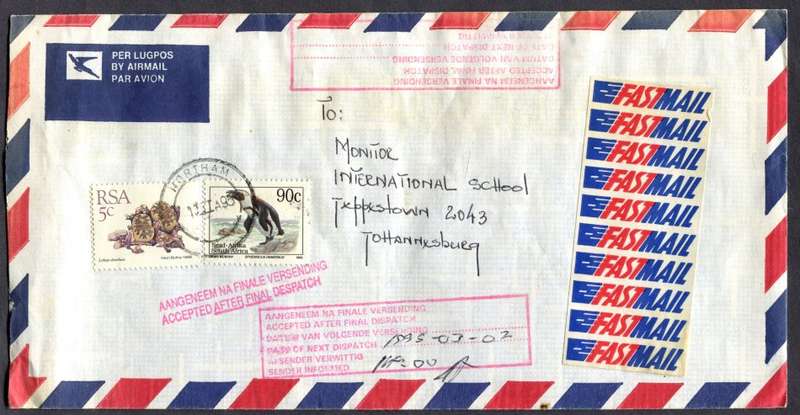 PER LUGPOS
BY AIRMAIL
PAR AVION
AANGENEEM NA FINALE VERSENDING
ACCEPTED AFTER FINAL DISPATCH
DATUM VAN VOLGENDE VERSENDING
DATE OF NEXT DISPATCH
TO:
MONITOR
INTERNATIONAL SCHOOL
JEPPESTOWN 2043
JOHANNESBURG
RSA
5c
90c
Suid-Afrika
South Africa
AANGENEEM NA FINALE VERSENDING
ACCEPTED AFTER FINAL DESPATCH
AANGENEEM NA FINALE VERSENDING
ACCEPTED AFTER FINAL DISPATCH
DATUM VAN VOLGENDE VERSENDING
DATE OF NEXT DISPATCH 1995-03-02
AFSENDER VERWITTIG
SENDER INFORMED
FASTMAIL
FASTMAIL
FASTMAIL
FASTMAIL
FASTMAIL
FASTMAIL
FASTMAIL
FASTMAIL
FASTMAIL
FASTMAIL